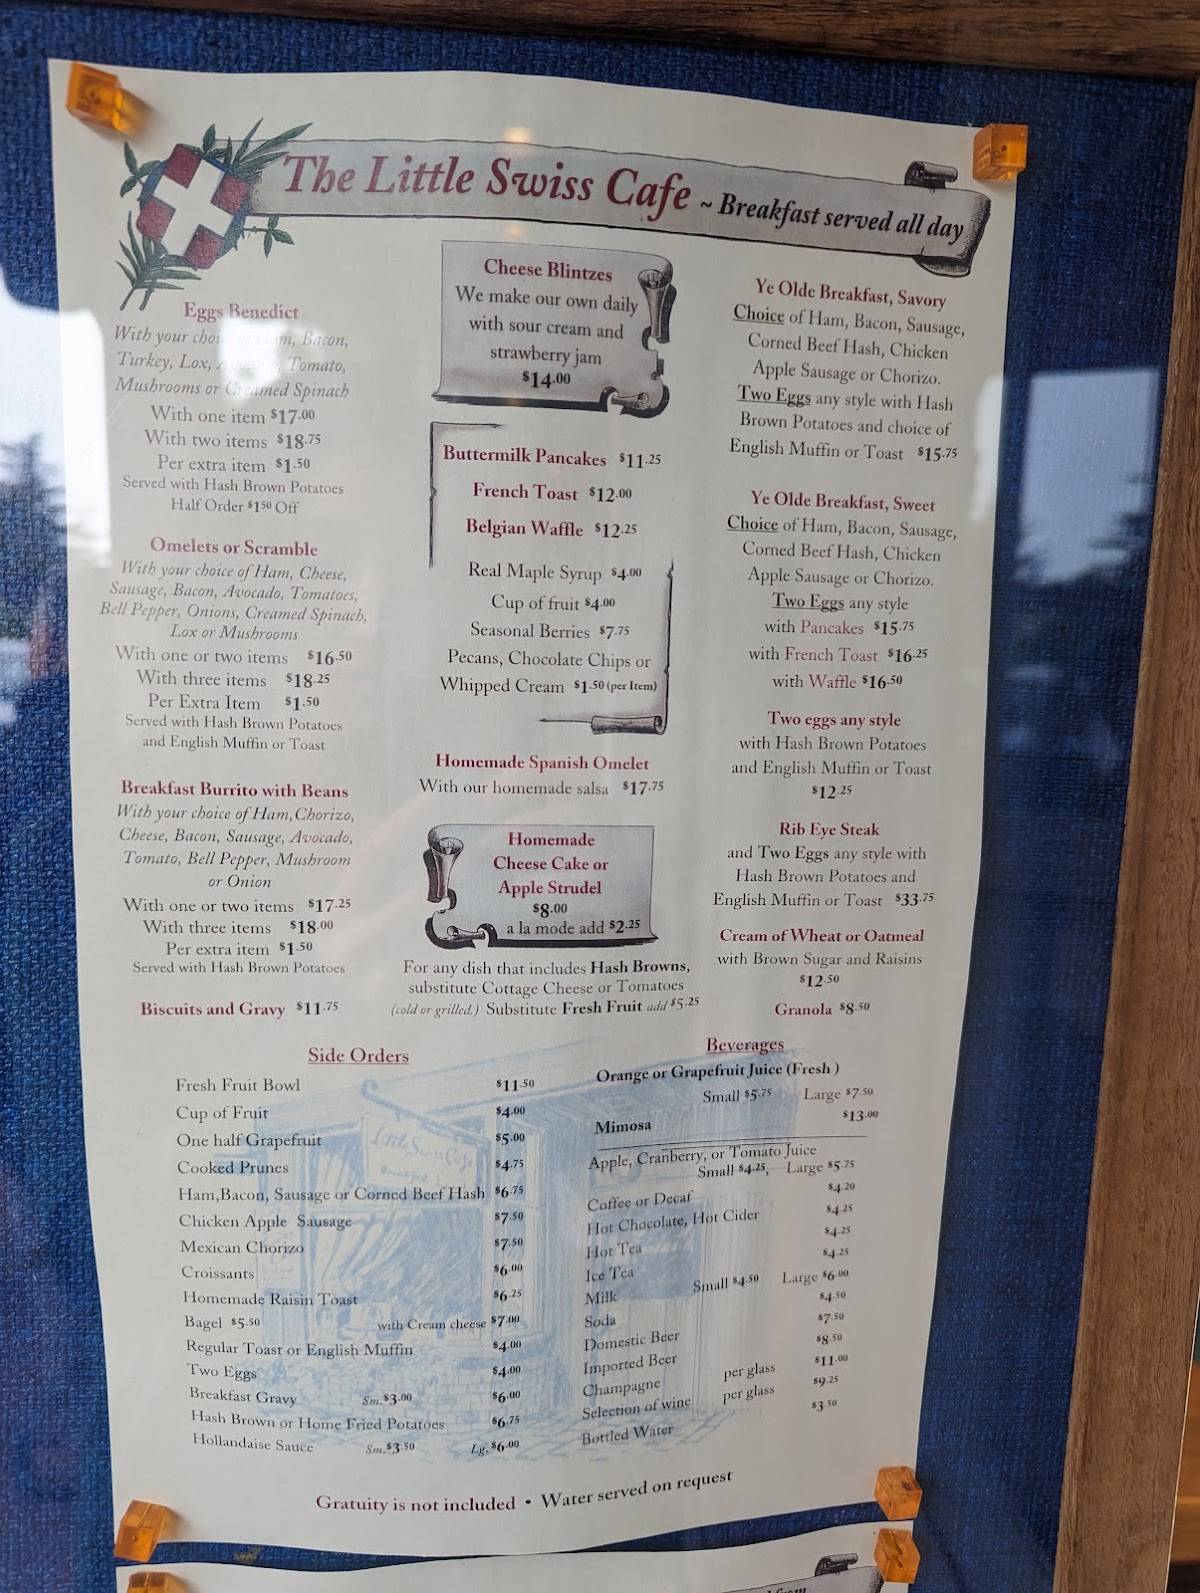 The Little Swiss Cafe ~ Breakfast served all day
Eggs Benedict
With your choice of Ham, Bacon,
Turkey, Lox, Tomato,
Mushrooms or Creamed Spinach
With one item $17.00
With two items $18.75
Per extra item $1.50
Served with Hash Brown Potatoes
Half Order $1.50 Off
Omelets or Scramble
With your choice of Ham, Cheese,
Sausage, Bacon, Avocado, Tomatoes,
Bell Pepper, Onions, Creamed Spinach,
Lox or Mushrooms
With one or two items $16.50
With three items $18.25
Per Extra Item $1.50
Served with Hash Brown Potatoes
and English Muffin or Toast
Breakfast Burrito with Beans
With your choice of Ham, Chorizo,
Cheese, Bacon, Sausage, Avocado,
Tomato, Bell Pepper, Mushroom
or Onion
With one or two items $17.25
With three items $18.00
Per extra item $1.50
Served with Hash Brown Potatoes
Biscuits and Gravy $11.75
Cheese Blintzes
We make our own daily
with sour cream and
strawberry jam
$14.00
Buttermilk Pancakes $11.25
French Toast $12.00
Belgian Waffle $12.25
Real Maple Syrup $4.00
Cup of fruit $4.00
Seasonal Berries $7.75
Pecans, Chocolate Chips or
Whipped Cream $1.50 (per Item)
Homemade Spanish Omelet
With our homemade salsa $17.75
Homemade
Cheese Cake or
Apple Strudel
$8.00
a la mode add $2.25
For any dish that includes Hash Browns,
substitute Cottage Cheese or Tomatoes
(cold or grilled.) Substitute Fresh Fruit add $5.25
Ye Olde Breakfast, Savory
Choice of Ham, Bacon, Sausage,
Corned Beef Hash, Chicken
Apple Sausage or Chorizo.
Two Eggs any style with Hash
Brown Potatoes and choice of
English Muffin or Toast $15.75
Ye Olde Breakfast, Sweet
Choice of Ham, Bacon, Sausage,
Corned Beef Hash, Chicken
Apple Sausage or Chorizo.
Two Eggs any style
with Pancakes $15.75
with French Toast $16.25
with Waffle $16.50
Two eggs any style
with Hash Brown Potatoes
and English Muffin or Toast
$12.25
Rib Eye Steak
and Two Eggs any style with
Hash Brown Potatoes and
English Muffin or Toast $33.75
Cream of Wheat or Oatmeal
with Brown Sugar and Raisins
$12.50
Granola $8.50
Side Orders
Fresh Fruit Bowl $11.50
Cup of Fruit $4.00
One half Grapefruit $5.00
Cooked Prunes $4.75
Ham,Bacon, Sausage or Corned Beef Hash $6.75
Chicken Apple Sausage $7.50
Mexican Chorizo $7.50
Croissants $6.00
Homemade Raisin Toast $6.25
Bagel $5.50 with Cream cheese $7.00
Regular Toast or English Muffin $4.00
Two Eggs $4.00
Breakfast Gravy Sm.$3.00 $6.00
Hash Brown or Home Fried Potatoes $6.75
Hollandaise Sauce Sm.$3.50 Lg. $6.00
Beverages
Orange or Grapefruit Juice (Fresh )
Small $5.75 Large $7.50
Mimosa $13.00
Apple, Cranberry, or Tomato Juice
Small $4.25, Large $5.75
Coffee or Decaf $4.20
Hot Chocolate, Hot Cider $4.25
Hot Tea $4.25
Ice Tea $4.25
Milk Small $4.50 Large $6.00
Soda $4.50
Domestic Beer $7.50
Imported Beer $8.50
Champagne per glass $11.00
Selection of wine per glass $9.25
Bottled Water $3.50
Gratuity is not included • Water served on request